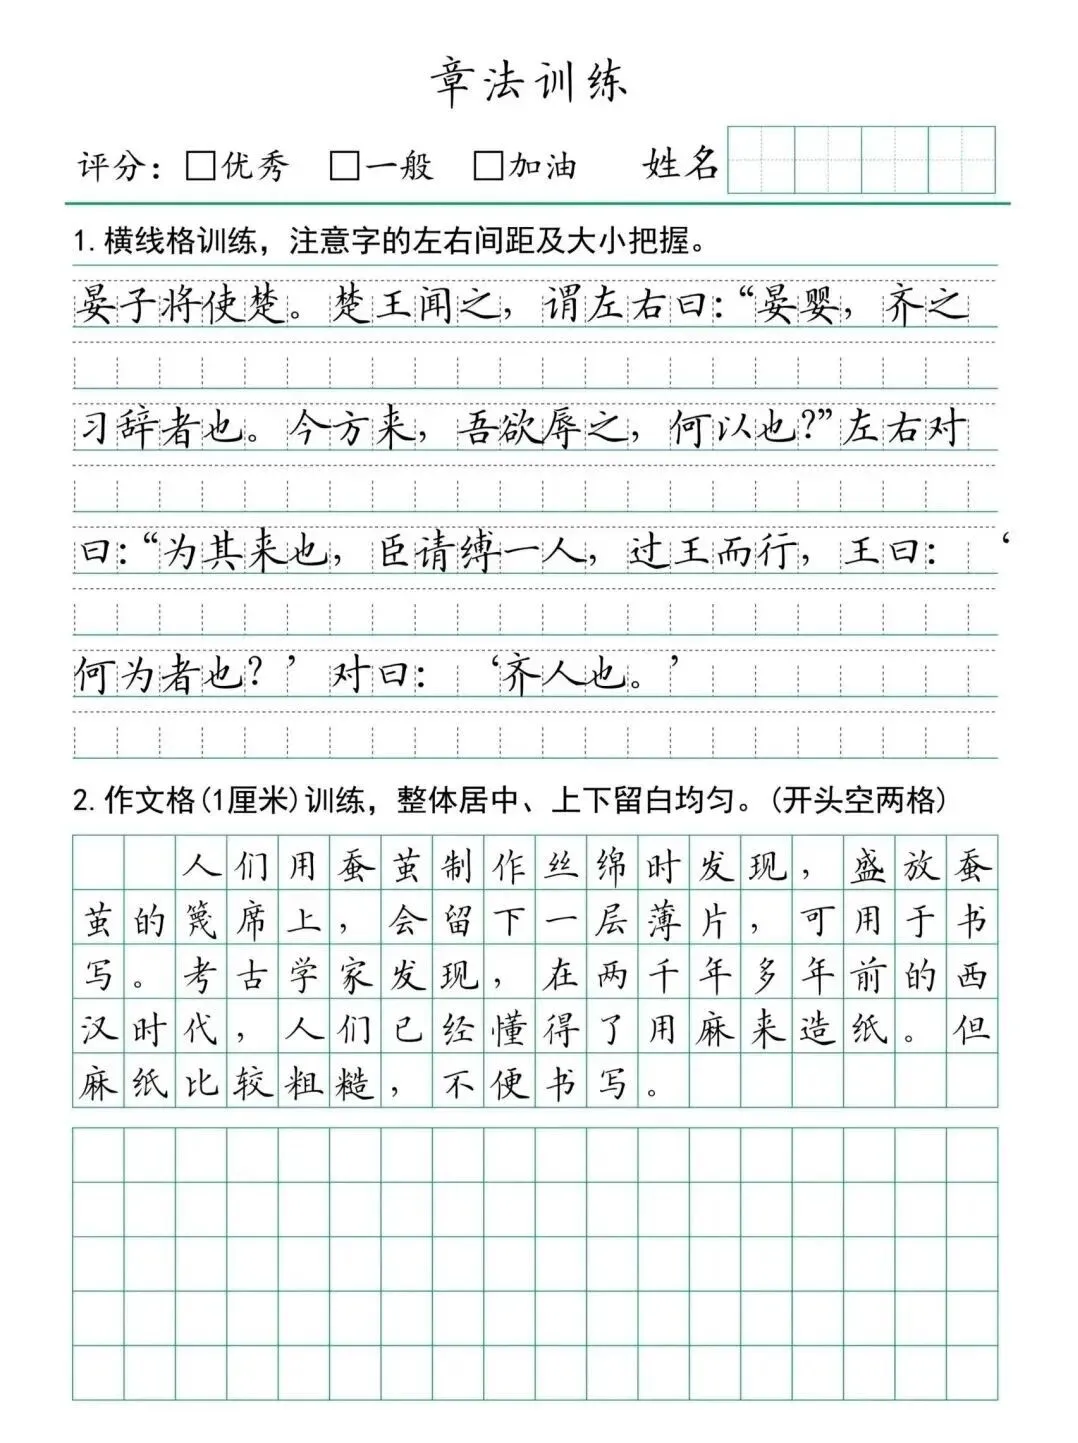 章法训练
评分：□优秀 □一般 □加油 姓名
1.横线格训练，注意字的左右间距及大小把握。
晏子将使楚。楚王闻之，谓左右曰：“晏婴，齐之
习辞者也。今方来，吾欲辱之，何以也？”左右对
曰：“为其来也，臣请缚一人，过王而行，王曰：‘
何为者也？’对曰：‘齐人也。’
2.作文格(1厘米)训练，整体居中、上下留白均匀。(开头空两格)
人们用蚕茧制作丝绵时发现，盛放蚕
茧的篾席上，会留下一层薄片，可用于书
写。考古学家发现，在两千年多年前的西
汉时代，人们已经懂得了用麻来造纸。但
麻纸比较粗糙，不便书写。